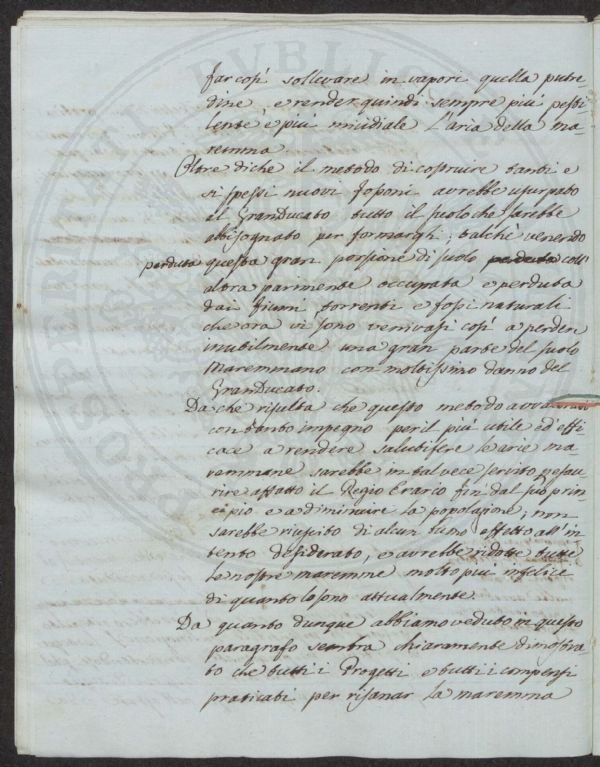 far così sollevare in vapori quella putre-
dine, e render quindi sempre più pesti-
lente e più micidiale l'aria della ma-
remma.
Oltre di che il metodo di costruire tanti e
sì spessi nuovi fossoni avrebbe usurpato
al GranDucato tutto il suolo che sarebbe
abbisognato per formargli; talchè venendo
perduta questa gran porzione di suolo coll'
altra parimente occupata e perduta
dai fiumi, torrenti e fossi naturali
che ora vi sono venivasi così a perdere
inutilmente una gran parte del suolo
Maremmano con moltissimo danno del
GranDucato.
Da che risulta che questo metodo
con tanto impegno per il più utile ed effi-
cace a rendere salubri le arie ma-
remmane sarebbe in tal vece servito
affatto il Regio Erario fin dal suo prin-
cipio e a diminuire la popolazione; non
sarebbe riuscito di alcun buono effetto all'in-
tento desiderato, e avrebbe ridotte tutte
le nostre maremme molto più infelici
di quanto lo sono attualmente.
Da quanto dunque abbiamo veduto in questo
paragrafo sembra chiaramente dimostra-
to che tutti i Progetti e tutti i compensi
praticati per risanar la maremma
PROSPERITATI PVBLICAE